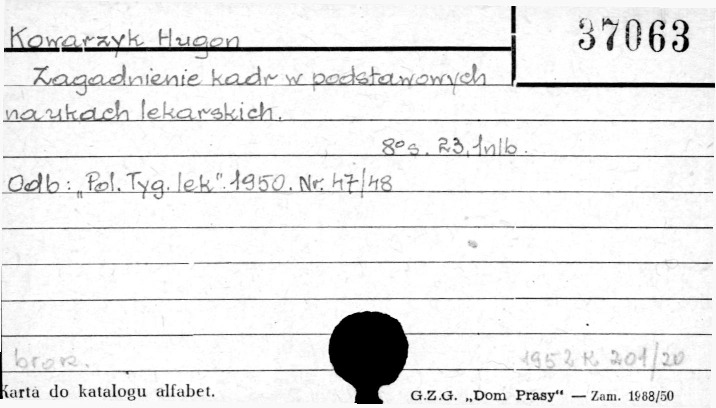 Kowarzyk Hugon
37063
Zagadnienie kadr w podstawowych
naukach lekarskich.
8º s. 23, 1nlb.
Odb: „Pol. Tyg. lek". 1950. Nr. 47/48
brosz.
1952 K 201/20
Karta do katalogu alfabet.
G.Z.G. „Dom Prasy" — Zam. 1988/50